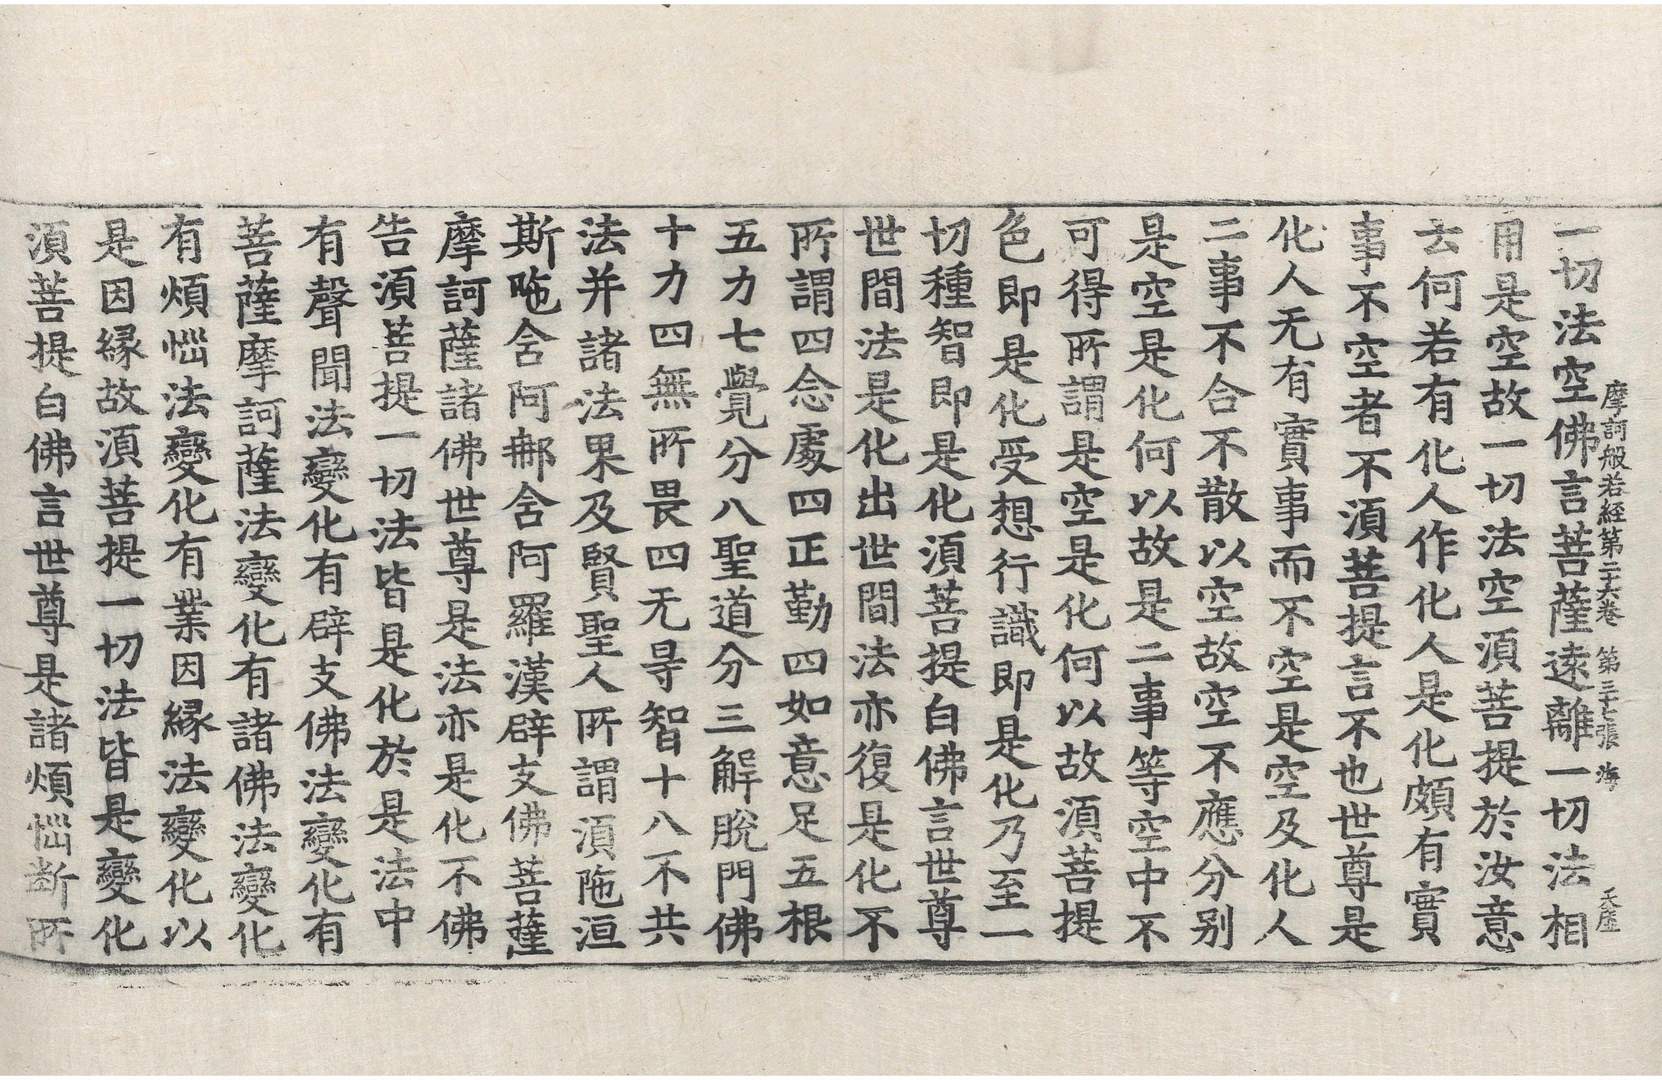 摩訶般若經第二十六卷 第三十七張 海
一切法空佛言菩薩遠離一切法相
用是空故一切法空須菩提於汝意
云何若有化人作化人是化頗有實
事不空者不須菩提言不也世尊是
化人无有實事而不空是空及化人
二事不合不散以空故空不應分別
是空是化何以故是二事等空中不
可得所謂是空是化何以故須菩提
色即是化受想行識即是化乃至一
切種智即是化須菩提白佛言世尊
世間法是化出世間法亦復是化不
所謂四念處四正勤四如意足五根
五力七覺分八聖道分三解脫門佛
十力四無所畏四无㝵智十八不共
法并諸法果及賢聖人所謂須陁洹
斯陁含阿郍含阿羅漢辟支佛菩薩
摩訶薩諸佛世尊是法亦是化不佛
告須菩提一切法皆是化於是法中
有聲聞法變化有辟支佛法變化有
菩薩摩訶薩法變化有諸佛法變化
有煩惱法變化有業因緣法變化以
是因緣故須菩提一切法皆是變化
須菩提白佛言世尊是諸煩惱斷所